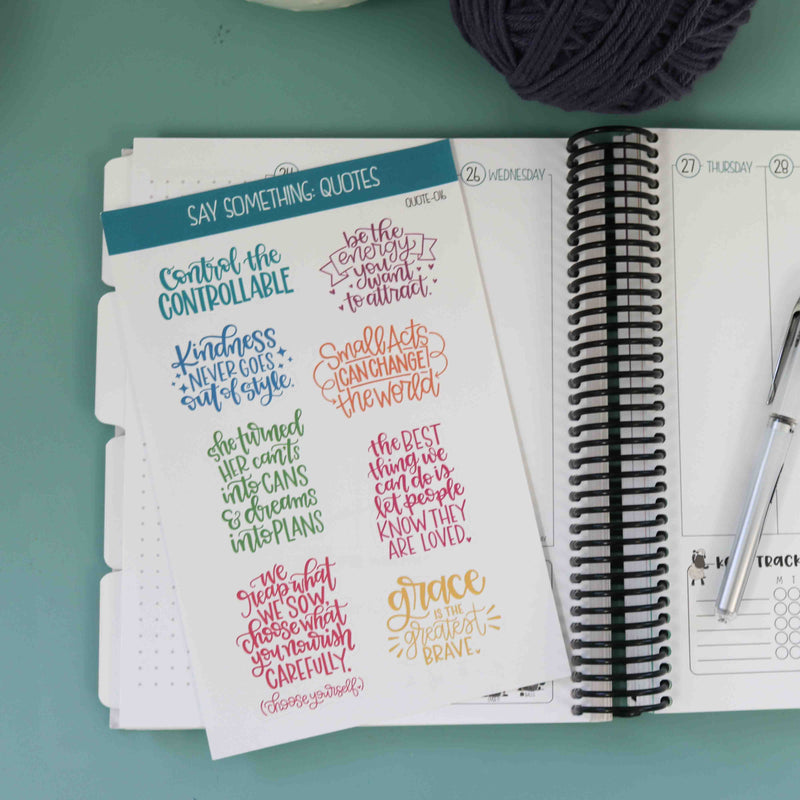 SAY SOMETHING: QUOTES
QUOTE-016
Control the
CONTROLLABLE
be the
energy
you
want
to attract.
Kindness
NEVER GOES
out of style.
Small Acts
CAN CHANGE
the world
she turned
HER can'ts
into CANS
& dreams
into PLANS
the BEST
thing we
can do is
let people
KNOW THEY
ARE LOVED.
we
reap what
WE SOW.
choose what
you nourish
CAREFULLY.
(choose yourself.)
grace
IS THE
greatest
BRAVE.
24
26 WEDNESDAY
27 THURSDAY
28
TRACK
M T